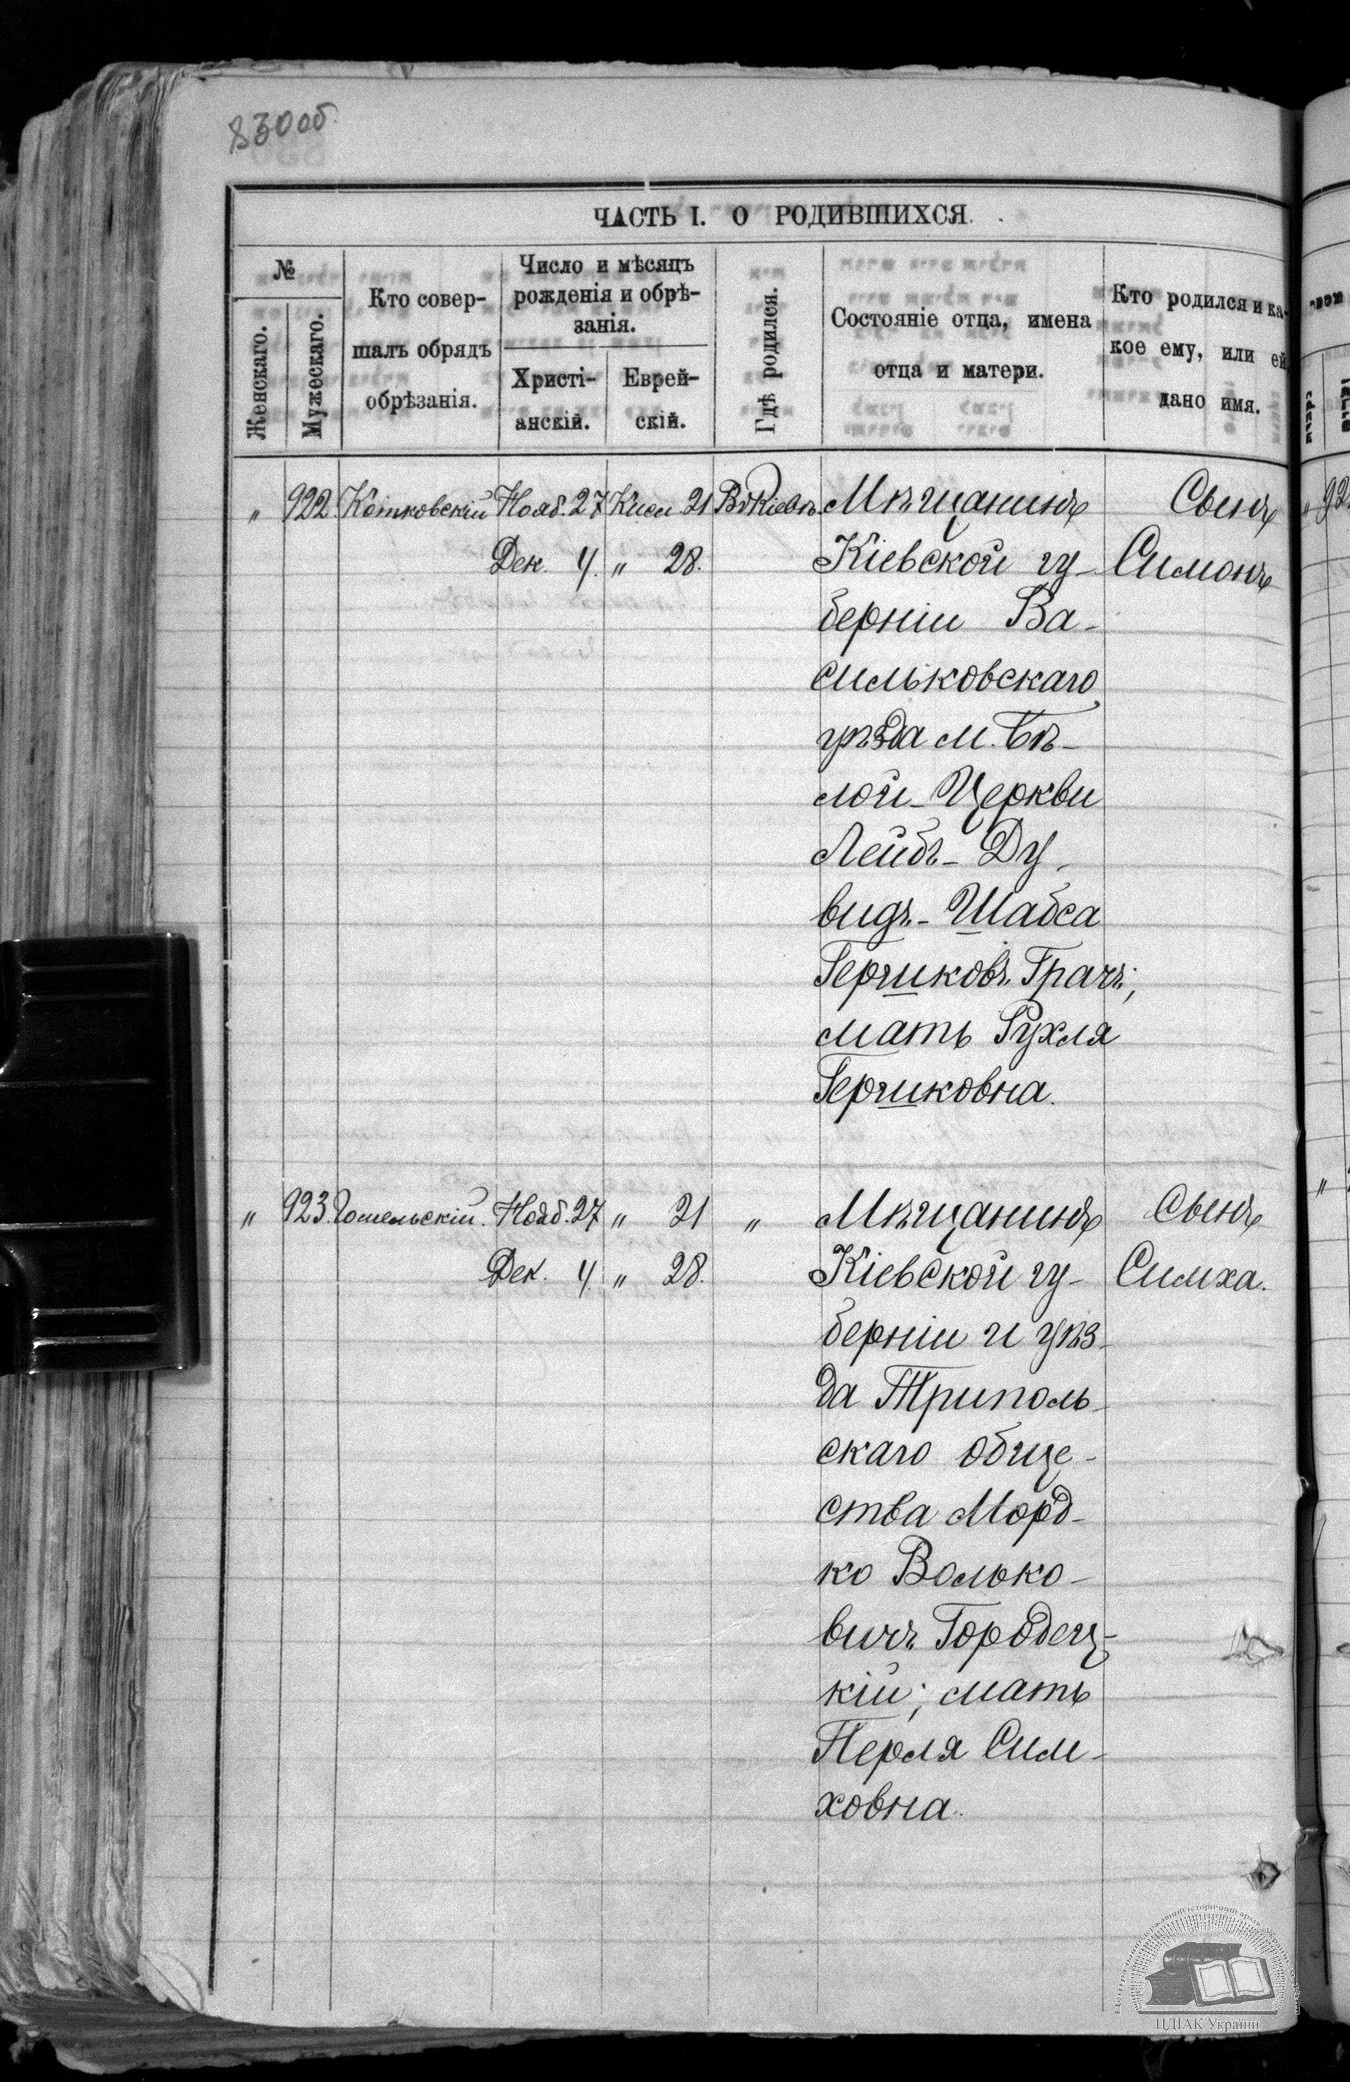 830 об.
ЧАСТЬ I. О РОДИВШИХСЯ.
№
Женскаго.
Мужескаго.
Кто совер-
шалъ обрядъ
обрѣзанія.
Число и мѣсяцъ
рожденія и обрѣ-
занія.
Христі-
анскій.
Еврей-
скій.
Гдѣ родился.
Состояніе отца, имена
отца и матери.
Кто родился и ка-
кое ему, или ей
дано имя.
„ 922 Котковскій Нояб. 27 Кисл 21 Въ Кіевѣ Мѣщанинъ Сынъ
Дек. 4. „ 28. Кіевской гу- Симонъ
берніи Ва-
сильковскаго
уѣзда м. Бѣ-
лой-Церкви
Лейбъ-Ду-
видъ-Шабса
Гершковъ Грачъ;
мать Рухля
Гершковна.
„ 923. Гомельскій. Нояб. 27 „ 21 „ Мѣщанинъ Сынъ
Дек. 4. „ 28. Кіевской гу- Симха.
берніи и уѣз-
да Триполь-
скаго обще-
ства Морд-
ко Волько-
вичъ Городец-
кій; мать
Перля Сим-
ховна.
ЦДІАК України